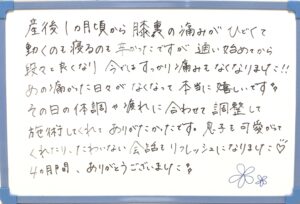 産後1ヵ月頃から膝裏の痛みがひどくて
動くのも寝るのも辛かったですが 通い始めてから
段々と良くなり 今ではすっかり痛みもなくなりました!!
あの痛かった日々がなくなって本当に嬉しいです。
その日の体調や疲れに合わせて調整して
施術してくれて ありがたかったです。息子も可愛がって
くれたり、たわいない会話もリフレッシュになりました♡
4ヵ月間、ありがとうございました。